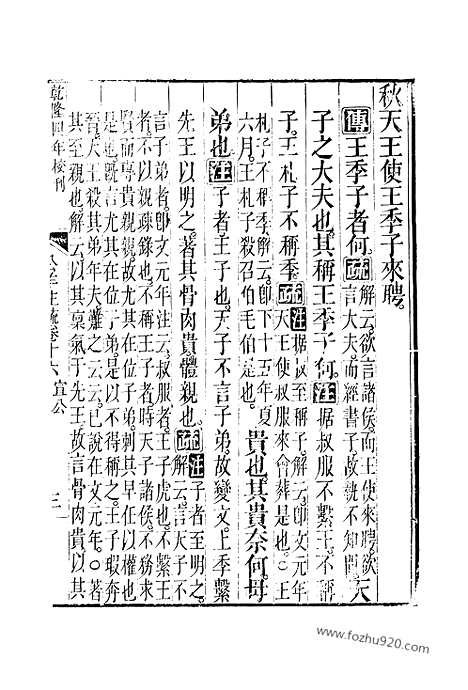 秋天王使王季子來聘。
傳王季子者何。疏解云欲言諸侯而王使來聘欲言大夫而經書子故執不知問天
子之大夫也其稱王季子何。注據叔服不繫王不稱
子王札子不稱季。疏注據叔至稱子。解云即文元年天王使叔服來會葬是也。○王
札子不稱季。解云即下十五年夏六月王札子殺召伯毛伯是也。貴也其貴奈何母
弟也。注子者王子也天子不言子弟故變文上季繫
先王以明之著其骨肉貴體親也。疏注子者至明之。解云言天子不
言子弟者即文元年注云叔服者王子虎也不繫王者不以親疏錄也不稱王子者時天子諸侯不務求
賢而專貴親親故尤其在位子弟刺其早任以權也是也既言尤其在位子弟是以不得稱之王子瑕奔
晉天王殺其弟年夫離之云云已說在文元年。○著其至親也。解云以其稟氣于先王故言骨肉貴以其
乾隆四年校刊 公羊注疏卷十六 宣公 三
www.fozhu920.com